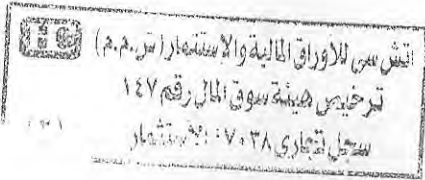 اتش سى للأوراق المالية والإستثمار (ش.م.م)
ترخيص هيئة سوق المال رقم ١٤٧
سجل تجارى ٧٠٣٨ الإستثمار